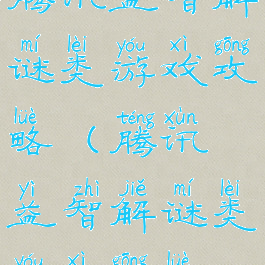 腾讯益智解
mí lèi yóu xì gōng
谜类游戏攻
luè téng xùn
略(腾讯
yì zhì jiě mí lèi
益智解谜类
yóu xì gōng luè